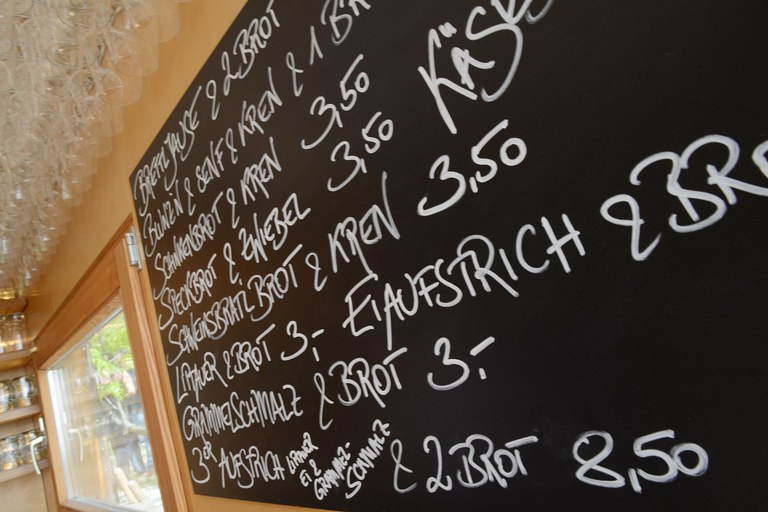 BRETTLJAUSE & 2 BROT
BLUNZN & SENF & KREN & 1 BR
SCHINKENBROT & KREN 3,50
SPECKBROT & ZWIEBEL 3,50 KÄS
SCHWEINSBRATLBROT & KREN 3,50
LIPTAUER & BROT 3,- EIAUFSTRICH & BR
GRAMMELSCHMALZ & BROT 3,-
3er AUFSTRICH LIPTAUER EI & GRAMML-SCHMALZ & 2 BROT 8,50